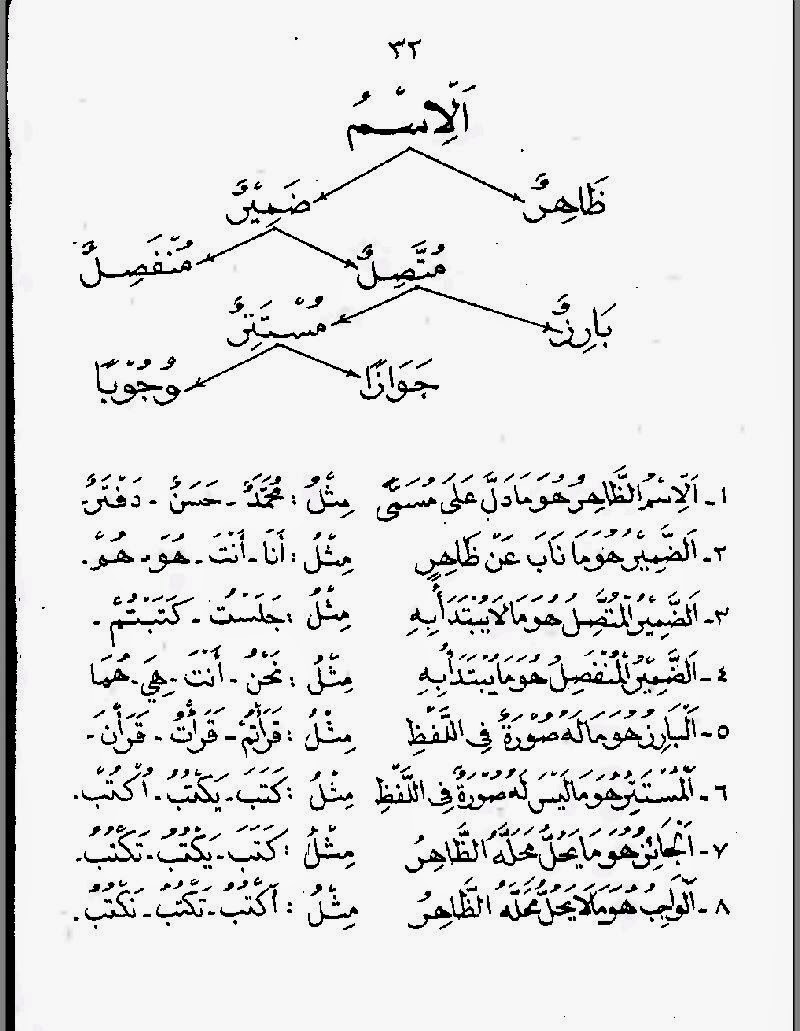 ٣٢
اَلْاِسْمُ
ظَاهِرٌ ضَمِيْرٌ
مُتَّصِلٌ مُنْفَصِلٌ
بَارِزٌ مُسْتَتِرٌ
جَوَازًا وُجُوْبًا
١- اَلْاِسْمُ الظَّاهِرُ هُوَ مَا دَلَّ عَلَى مُسَمًّى مِثْلُ : مُحَمَّدٌ - حَسَنٌ - دَفْتَرٌ
٢- اَلضَّمِيْرُ هُوَ مَا نَابَ عَنْ ظَاهِرٍ مِثْلُ : أَنَا - أَنْتَ - هُوَ - هُمْ.
٣- اَلضَّمِيْرُ الْمُتَّصِلُ هُوَ مَا لَا يُبْتَدَأُ بِهِ مِثْلُ : جَلَسْتُ - كَتَبْتُمْ -
٤- اَلضَّمِيْرُ الْمُنْفَصِلُ هُوَ مَا يُبْتَدَأُ بِهِ مِثْلُ : نَحْنُ - أَنْتَ - هِيَ - هُمَا
٥- اَلْبَارِزُ هُوَ مَا لَهُ صُوْرَةٌ فِى اللَّفْظِ مِثْلُ : قَرَأْتُمْ - قَرَأْتُ - قَرَأْنَ -
٦- اَلْمُسْتَتِرُ هُوَ مَا لَيْسَ لَهُ صُوْرَةٌ فِى اللَّفْظِ مِثْلُ : كَتَبَ - يَكْتُبُ - اُكْتُبْ.
٧- اَلْجَائِزُ هُوَ مَا يَحُلُّ مَحَلَّهُ الظَّاهِرُ مِثْلُ : كَتَبَ - يَكْتُبُ - تَكْتُبُ.
٨- اَلْوَاجِبُ هُوَ مَا لَا يَحُلُّ مَحَلَّهُ الظَّاهِرُ مِثْلُ : أَكْتُبُ - تَكْتُبُ - نَكْتُبُ.